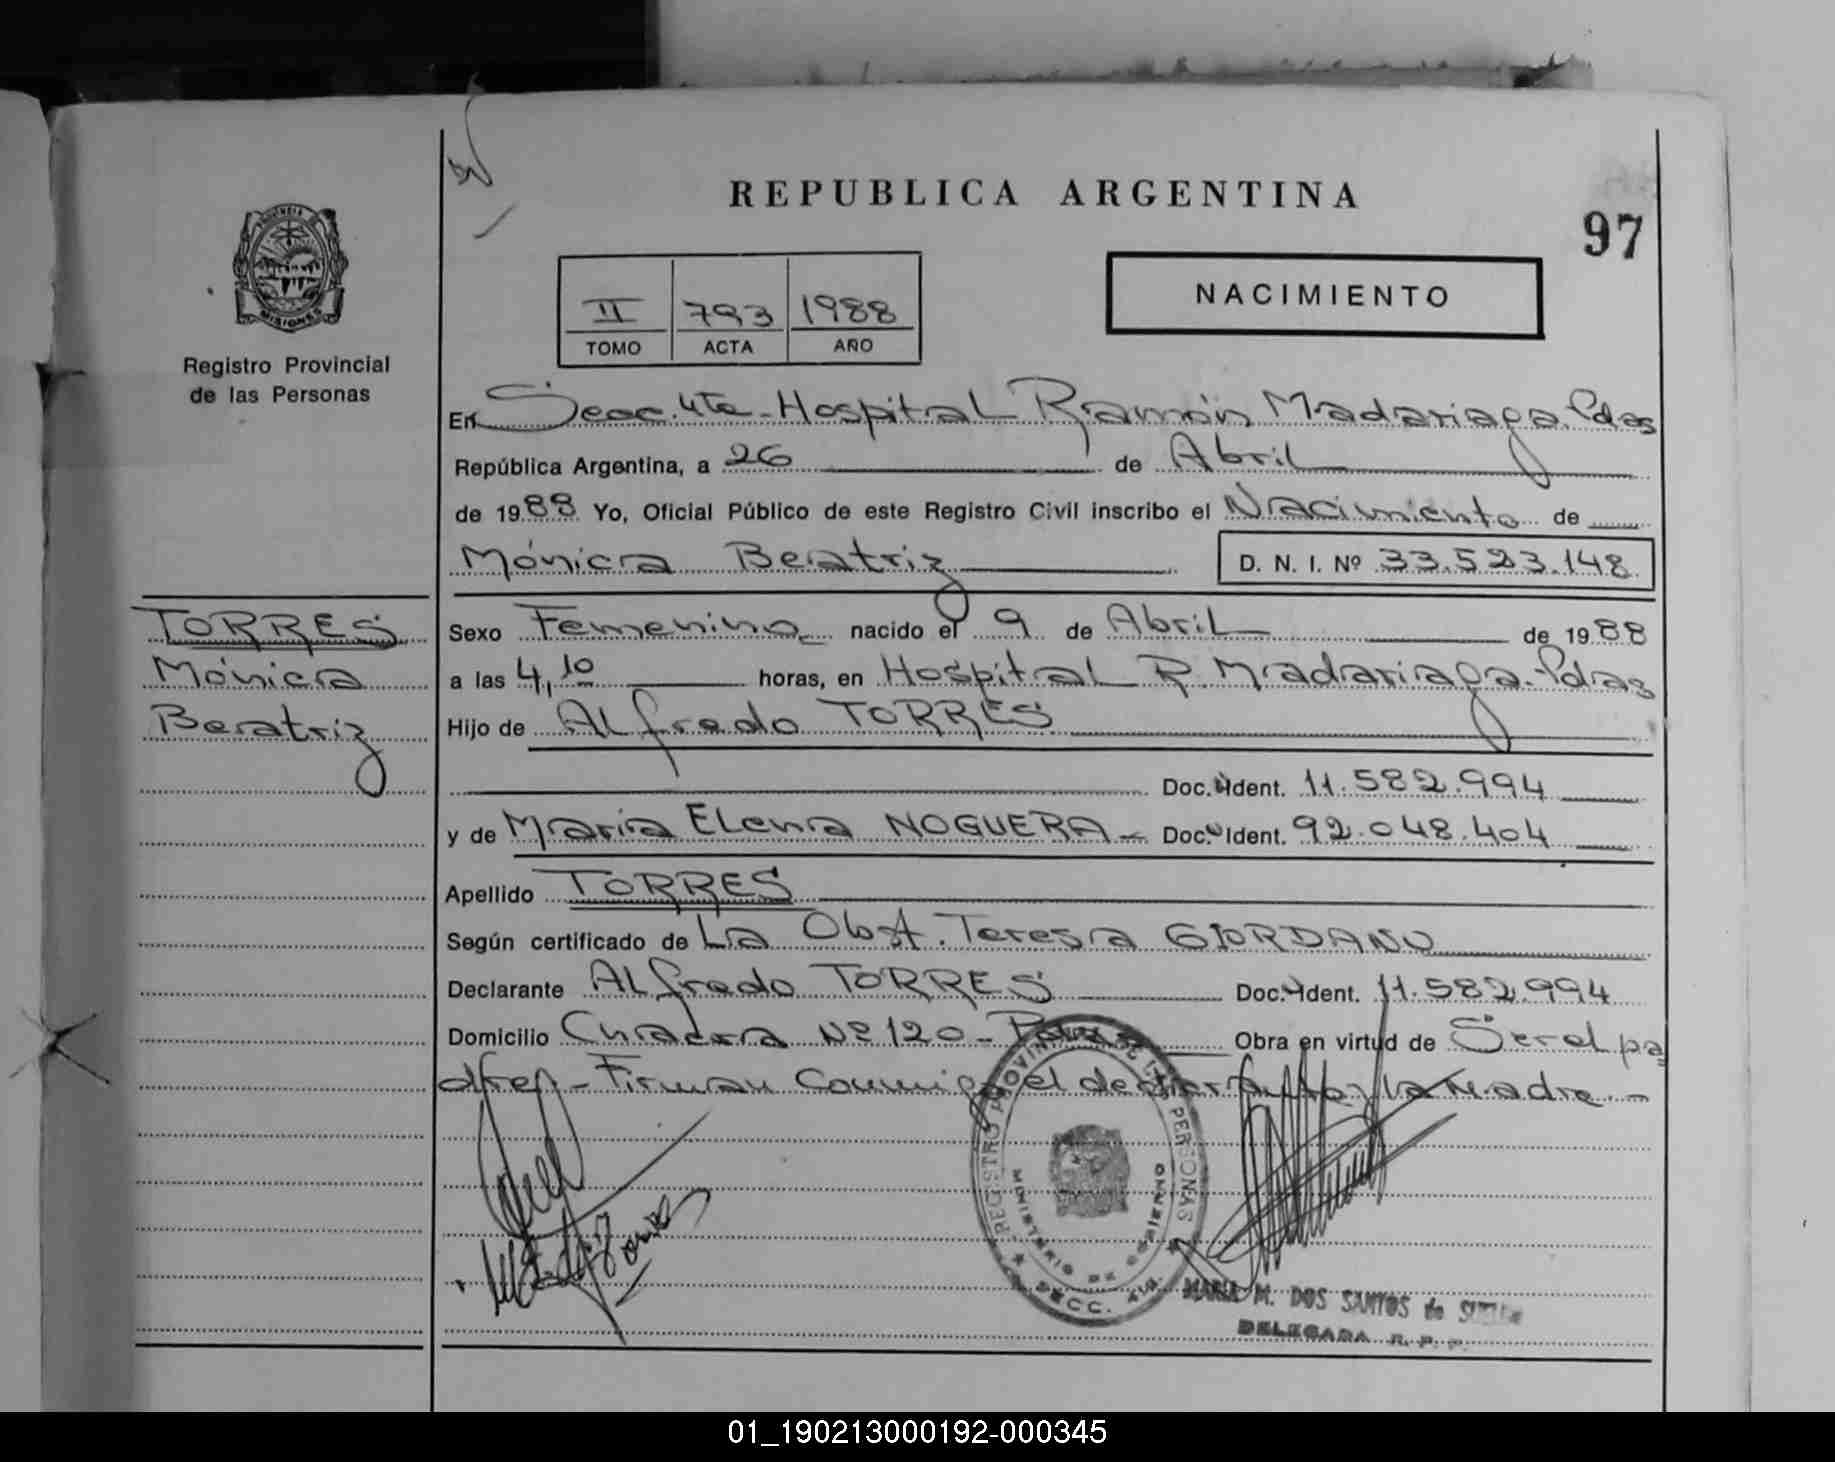 REPUBLICA ARGENTINA
97
PROVINCIA
MISIONES
Registro Provincial
de las Personas
II 793 1988
TOMO ACTA AÑO
NACIMIENTO
En Secc. 4ta - Hospital Ramón Madariaga. Pdas
República Argentina, a 26 de Abril
de 1988 Yo, Oficial Público de este Registro Civil inscribo el Nacimiento de
Mónica Beatriz D. N. I. Nº 33.523.148
TORRES
Mónica
Beatriz
Sexo Femenino nacido el 9 de Abril de 1988
a las 4,10 horas, en Hospital R. Madariaga. Pdas
Hijo de Alfredo TORRES
Doc. Ident. 11.582.994
y de María Elena NOGUERA - Doc. Ident. 92.048.404
Apellido TORRES
Según certificado de La Obst. Teresa GIORDANO
Declarante Alfredo TORRES Doc. Ident. 11.582.994
Domicilio Chacra Nº 120 - Pdas Obra en virtud de Ser el pa
dre - Firman Conmigo el declarante y la Madre -
REGISTRO PROVINCIAL DE LAS PERSONAS
MINISTERIO DE GOBIERNO
SECC. 4ta.
MARIA M. DOS SANTOS de
DELEGADA R. P. P.
01_190213000192-000345